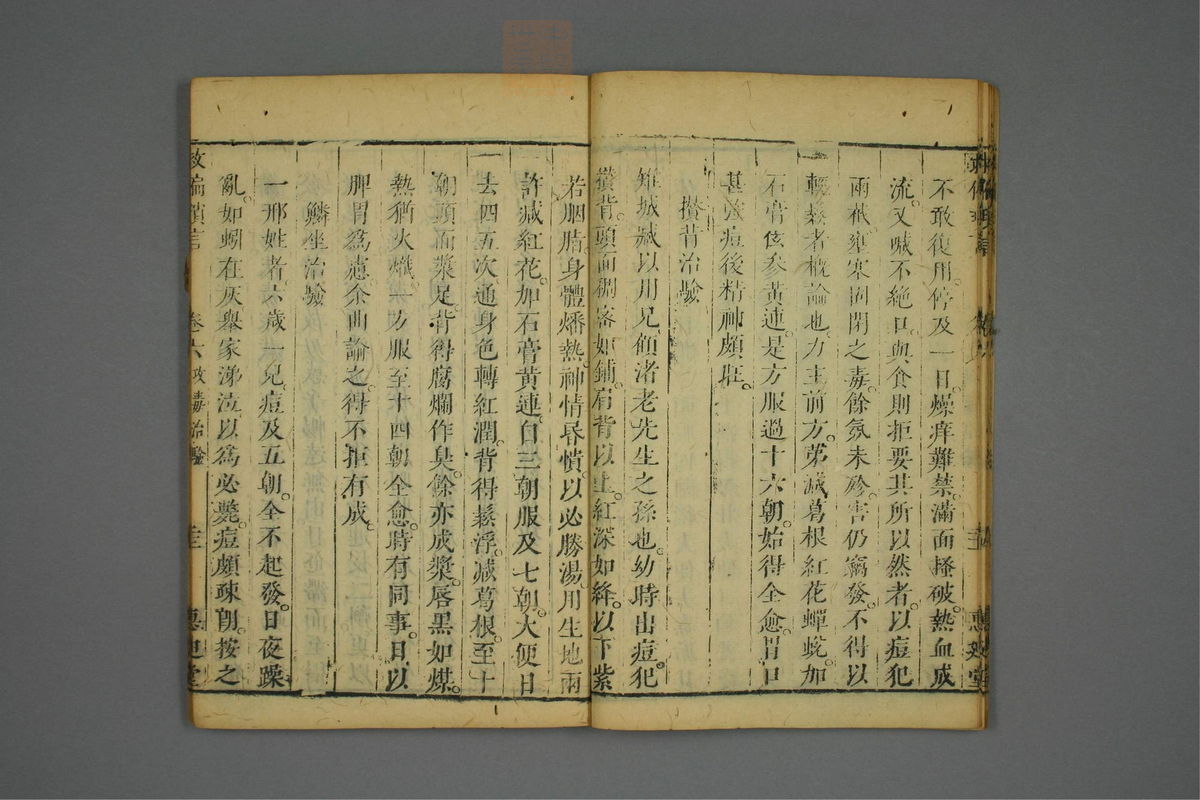 不敢復用。停及一日。燥痒難禁。滿面搔破。熱血成
流。又喊不絕口。與食則拒。要其所以然者。以痘犯
兩截。壅塞固閉之毒。餘氛未殄。害仍竊發。不得以
輕鬆者概論也。力主前方。第減葛根紅花蟬蛻。加
石膏。參黃連。是方服過十六朝。始得全愈。胃口
甚強。痘後精神頗旺。
攢背治驗
雉城臧以用兄。顧渚老先生之孫也。幼時出痘。犯
攢背。頭面稠密如鋪。肩背以上。紅深如絳。以下紫
若胭脂。身體燔熱。神情昏憒。以必勝湯用生地兩
許。減紅花。加石膏黃連。自三朝服及七朝。大便日
去四五次。通身色轉紅潤。背得鬆浮。減葛根。至十
朝。頭面漿足。背得腐爛作臭。餘亦成漿。唇黑如煤。
熱猶火熾。一方服至十四朝全愈。時有同事。日以
脾胃為慮。余曲論之。得不拒有成。
鱗坐治驗
一邢姓者。六歲一兒。痘及五朝。全不起發。日夜躁
亂。如蚓在灰。舉家涕泣。以為必斃。痘頗疎朗。按之
救偏瑣言 卷六 治驗